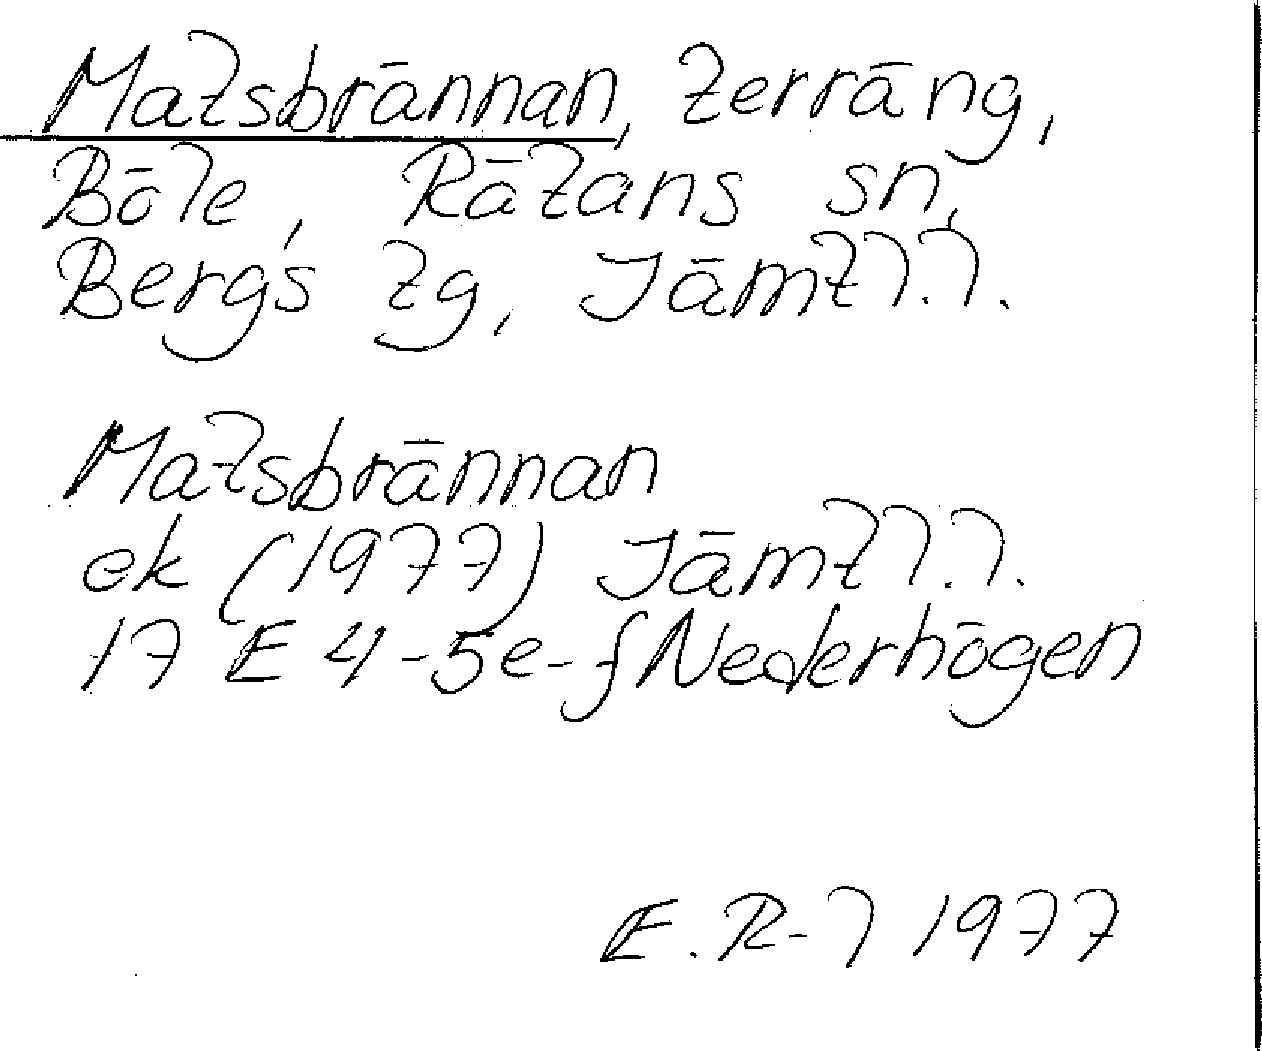 Matsbrännan, terräng,
Böle, Rätans sn,
Bergs tg, Jämtl.l.
Matsbrännan
ek (1977) Jämtl.l.
17 E 4-5e-f Nederhögen
E.R-l 1977